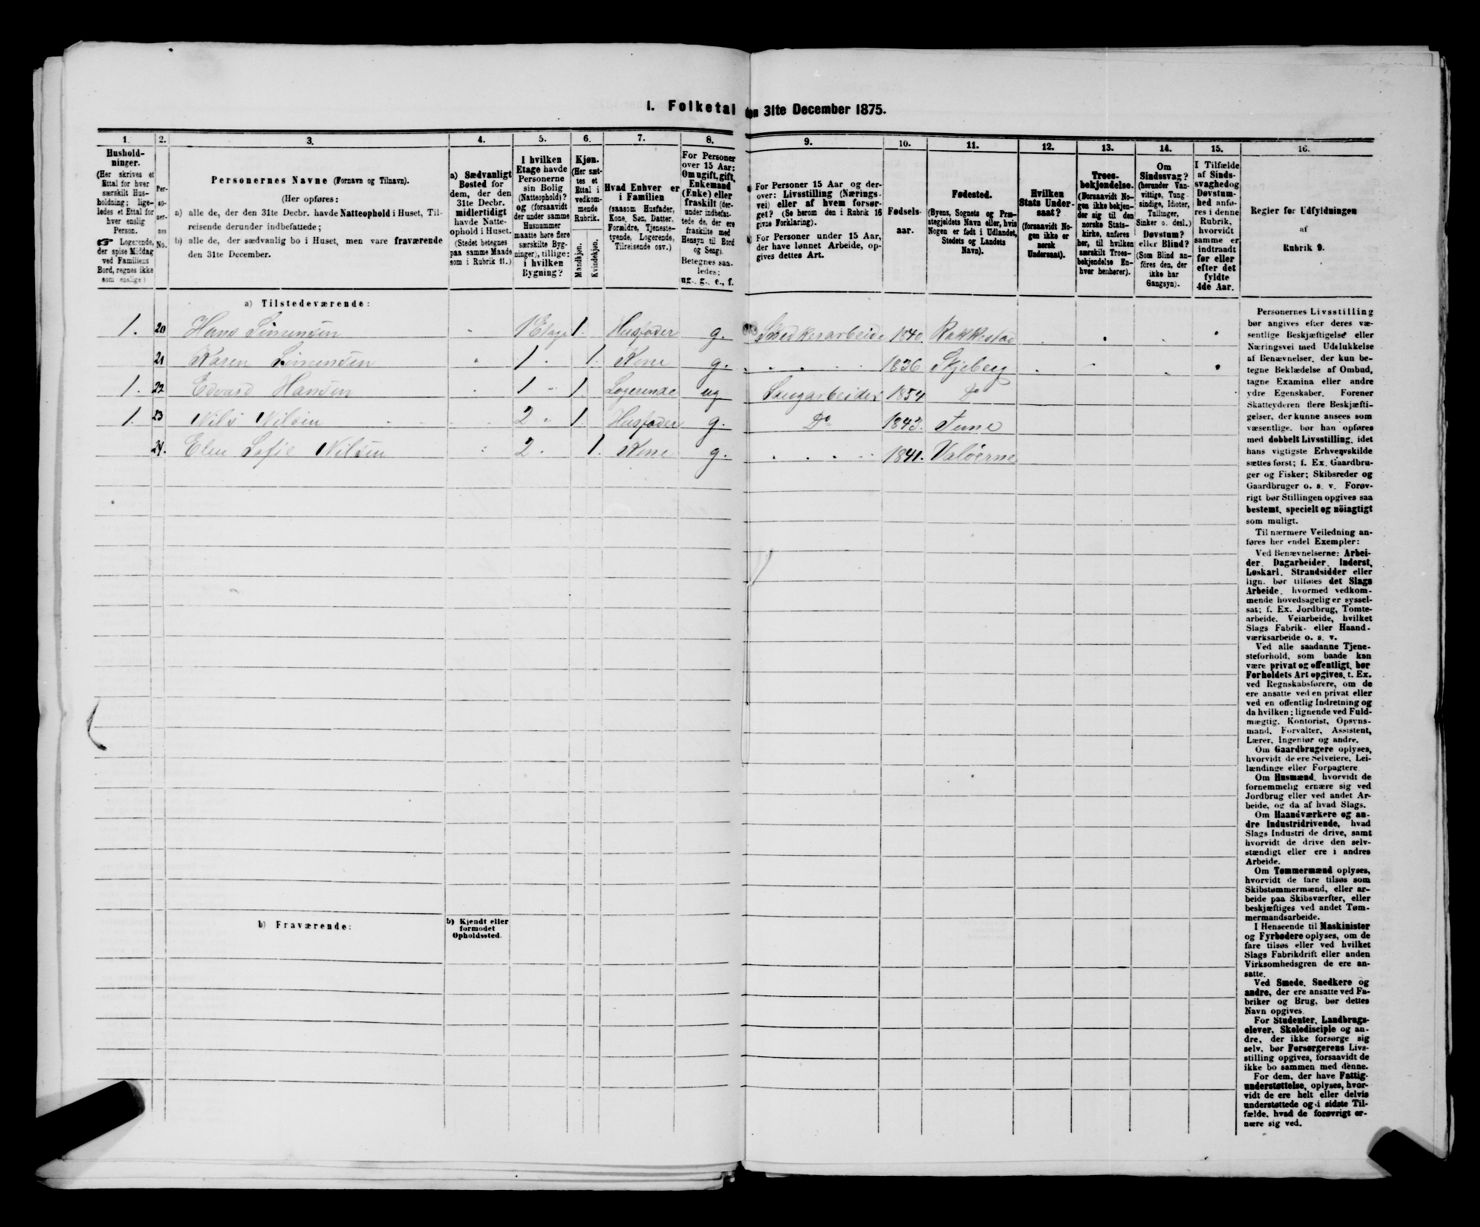 I. Folketal den 31te December 1875.
1.
2.
3.
4.
5.
6.
7.
8.
9.
10.
11.
12.
13.
14.
15.
16.
Hushold-
ninger.
(Her skrives et
Ettal for hver
særskilt Hus-
holdning; lige-
ledes et Ettal for
hver enslig
Person.
☞ Logerende,
der spise Middag
ved Familiens
Bord, regnes ikke
som enslige.)
Per-
so-
ner-
nes
No.
Personernes Navne (Fornavn og Tilnavn).
(Her opføres:
a) alle de, der den 31te Decbr. havde Natteophold i Huset, Til-
reisende derunder indbefattede;
b) alle de, der sædvanlig bo i Huset, men vare fraværende
den 31te December.
a) Sædvanligt
Bosted for
dem, der den
31te Decbr.
midlertidigt
havde Natte-
ophold i Huset.
(Stedet betegnes
paa samme Maade
som i Rubrik 11.)
I hvilken
Etage havde
Personerne
sin Bolig
(Natteophold)?
og (forsaavidt
der under samme
Husnummer
maatte høre flere
særskilte Byg-
ninger), tillige:
i hvilken
Bygning?
Kjøn.
(Her sæt-
tes et
Ettal i
vedkom-
mende
Rubrik.
Mandkjøn.
Kvindekjøn.
Hvad Enhver er
i Familien
(saasom Husfader,
Kone, Søn, Datter,
Forældre, Tjeneste-
tyende, Logerende,
Tilreisende osv.).
For Personer
over 15 Aar:
Om ugift, gift,
Enkemand
(Enke) eller
fraskilt (der-
under indbefat-
tede de, der ere
fraskilte med
Hensyn til Bord
og Seng).
Betegnes saa-
ledes:
ug., g., e., f.
a) For Personer 15 Aar og der-
over: Livsstilling (Nærings-
vei) eller af hvem forsør-
get? (Se herom den i Rubrik 16
givne Forklaring).
b) For Personer under 15 Aar,
der have lønnet Arbeide, op-
gives dettes Art.
Fødsels-
aar.
Fødested.
(Byens, Sognets og Præ-
stegjeldets Navn eller, hvis
Nogen er født i Udlandet,
Stedets og Landets
Navn).
Hvilken
Stats Under-
saat?
(forsaavidt No-
gen ikke er
norsk
Undersaat).
Troes-
bekjendelse.
(Forsaavidt No-
gen ikke bekjen-
der sig til den
norske Stats-
kirke, anføres
her, til hvilken
særskilt Troes-
bekjendelse En-
hver henhører).
Om
Sindssvag?
(herunder Van-
vittige, Tung-
sindige, Idioter,
Tullinger,
Sinker o. desl.)
Døvstum?
eller Blind?
(Som Blind an-
føres den, der
ikke har
Gangsyn).
I Tilfælde
af Sinds-
svaghed og
Døvstum-
hed anfø-
res i denne
Rubrik,
hvorvidt
samme er
indtraadt
før eller
efter det
fyldte
4de Aar.
Regler for Udfyldningen
af
Rubrik 9.
a) Tilstedeværende:
1. 20 Hans Simensen 1 Etage 1. Husfader g. Snedkerarbeide 1840 Rakkestad
21 Karen Simensen 1 1. Kone g. 1836 Skjeberg
1. 22 Edvard Hansen 1 1. Logerende ug Saugarbeider 1854 Do
1. 23 Nils Nilsen 2 1. Husfader g. Do 1843. Tune
24. Elen Sofie Nilsen 2 1. Kone g. 1841. Valøerne
b) Fraværende:
b) Kjendt eller
formodet
Opholdssted.
Personernes Livsstilling
bør angives efter deres væ-
sentlige Beskjæftigelse eller
Næringsvei med Udelukkelse
af Benævnelser, der kun be-
tegne Beklædelse af Ombud,
tagne Examina eller andre
ydre Egenskaber. Forener
Skatteyderen flere Beskjæfti-
gelser, der kunne ansees som
væsentlige, bør han opføres
med dobbelt Livsstilling, idet
hans vigtigste Erhvervskilde
sættes først; f. Ex. Gaardbru-
ger og Fisker; Skibsreder og
Gaardbruger o. s. v. Forøv-
rigt bør Stillingen opgives saa
bestemt, specielt og nøiagtigt
som muligt.
Til nærmere Veiledning an-
føres her endel Exempler:
Ved Benævnelserne: Arbei-
der, Dagarbeider, Inderst,
Løskarl, Strandsidder eller
lign. bør tilføies det Slags
Arbeide, hvormed vedkom-
mende hovedsagelig er syssel-
sat; f. Ex. Jordbrug, Tomte-
arbeide, Veiarbeide, hvilket
Slags Fabrik- eller Haand-
værksarbeide o. s. v.
Ved alle saadanne Tjene-
steforhold, som baade kan
være privat og offentligt, bør
Forholdets Art opgives, t. Ex.
ved Regnskabsførere, om de
ere ansatte ved en privat eller
ved en offentlig Indretning og
da hvilken; lignende ved Fuld-
mægtig, Kontorist, Opsyns-
mand, Forvalter, Assistent,
Lærer, Ingeniør og andre.
Om Gaardbrugere oplyses,
hvorvidt de ere Selveiere, Lei-
lændinge eller Forpagtere.
Om Husmænd, hvorvidt de
fornemmelig ernære sig ved
Jordbrug eller ved andet Ar-
beide, og da af hvad Slags.
Om Haandværkere og an-
dre Industridrivende, hvad
Slags Industri de drive, samt
hvorvidt de drive den selv-
stændigt eller ere i andres
Arbeide.
Om Tømmermænd oplyses,
hvorvidt de fare tilsøs som
Skibstømmermænd, eller ar-
beide paa Skibsværfter, eller
beskjæftiges ved andet Tøm-
mermandsarbeide.
I Henseende til Maskinister
og Fyrbødere oplyses, om de
fare tilsøs eller ved hvilket
Slags Fabrikdrift eller anden
Virksomhedsgren de ere an-
satte.
Ved Smede, Snedkere og
andre, der ere ansatte ved Fa-
briker og Brug, bør dettes
Navn opgives.
For Studenter, Landbrugs-
elever, Skoledisciple og an-
dre, der ikke forsørge sig
selv, bør Forsørgerens Livs-
stilling opgives, forsaavidt de
ikke bo sammen med denne.
For dem, der have Fattig-
understøttelse, oplyses, hvor-
vidt de ere helt eller delvis
understøttede og i sidste Til-
fælde, hvad de forøvrigt er-
nære sig ved.